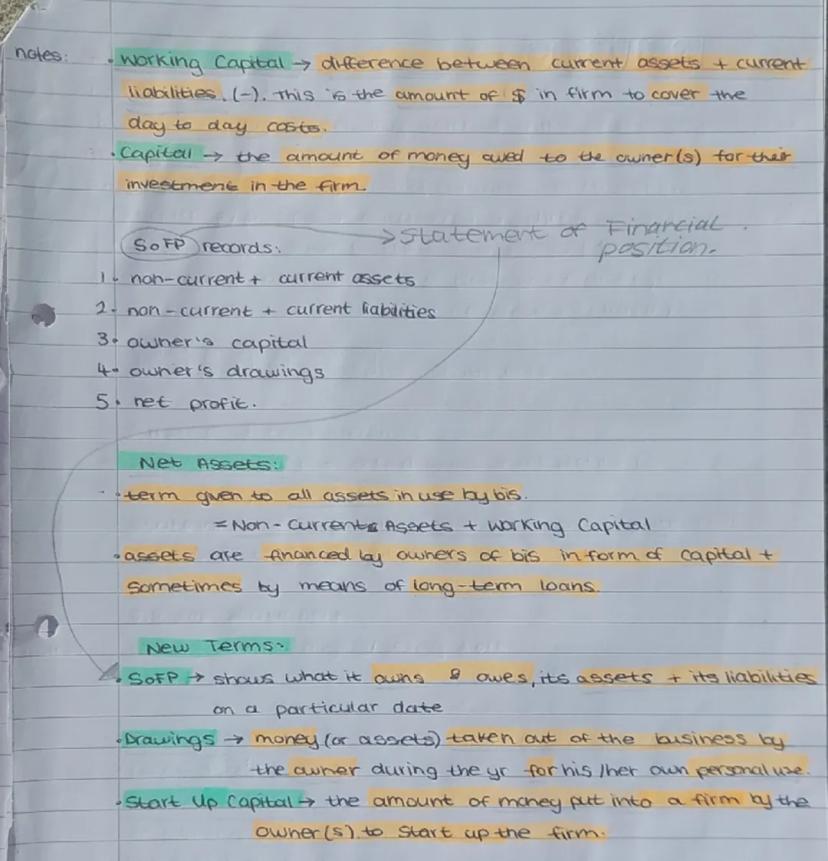 notes: · Working Capital → difference between current assets + current
liabilities. (-). This is the amount of $ in firm to cover the
day to day costs.
· Capital → the amount of money owed to the owner(s) for their
investment in the firm.
SoFP records: → Statement of Financial
position.
1. non-current + current assets
2. non-current + current liabilities
3. owner's capital
4. owner's drawings
5. net profit.
Net Assets:
· term given to all assets in use by bis.
= Non-Current Assets + Working Capital
· assets are financed by owners of bis in form of capital +
sometimes by means of long-term loans.
New Terms:
· SoFP → shows what it owns & owes, its assets + its liabilities
on a particular date
· Drawings → money (or assets) taken out of the business by
the owner during the yr for his/her own personal use.
· Start Up Capital → the amount of money put into a firm by the
owner(s) to start up the firm.